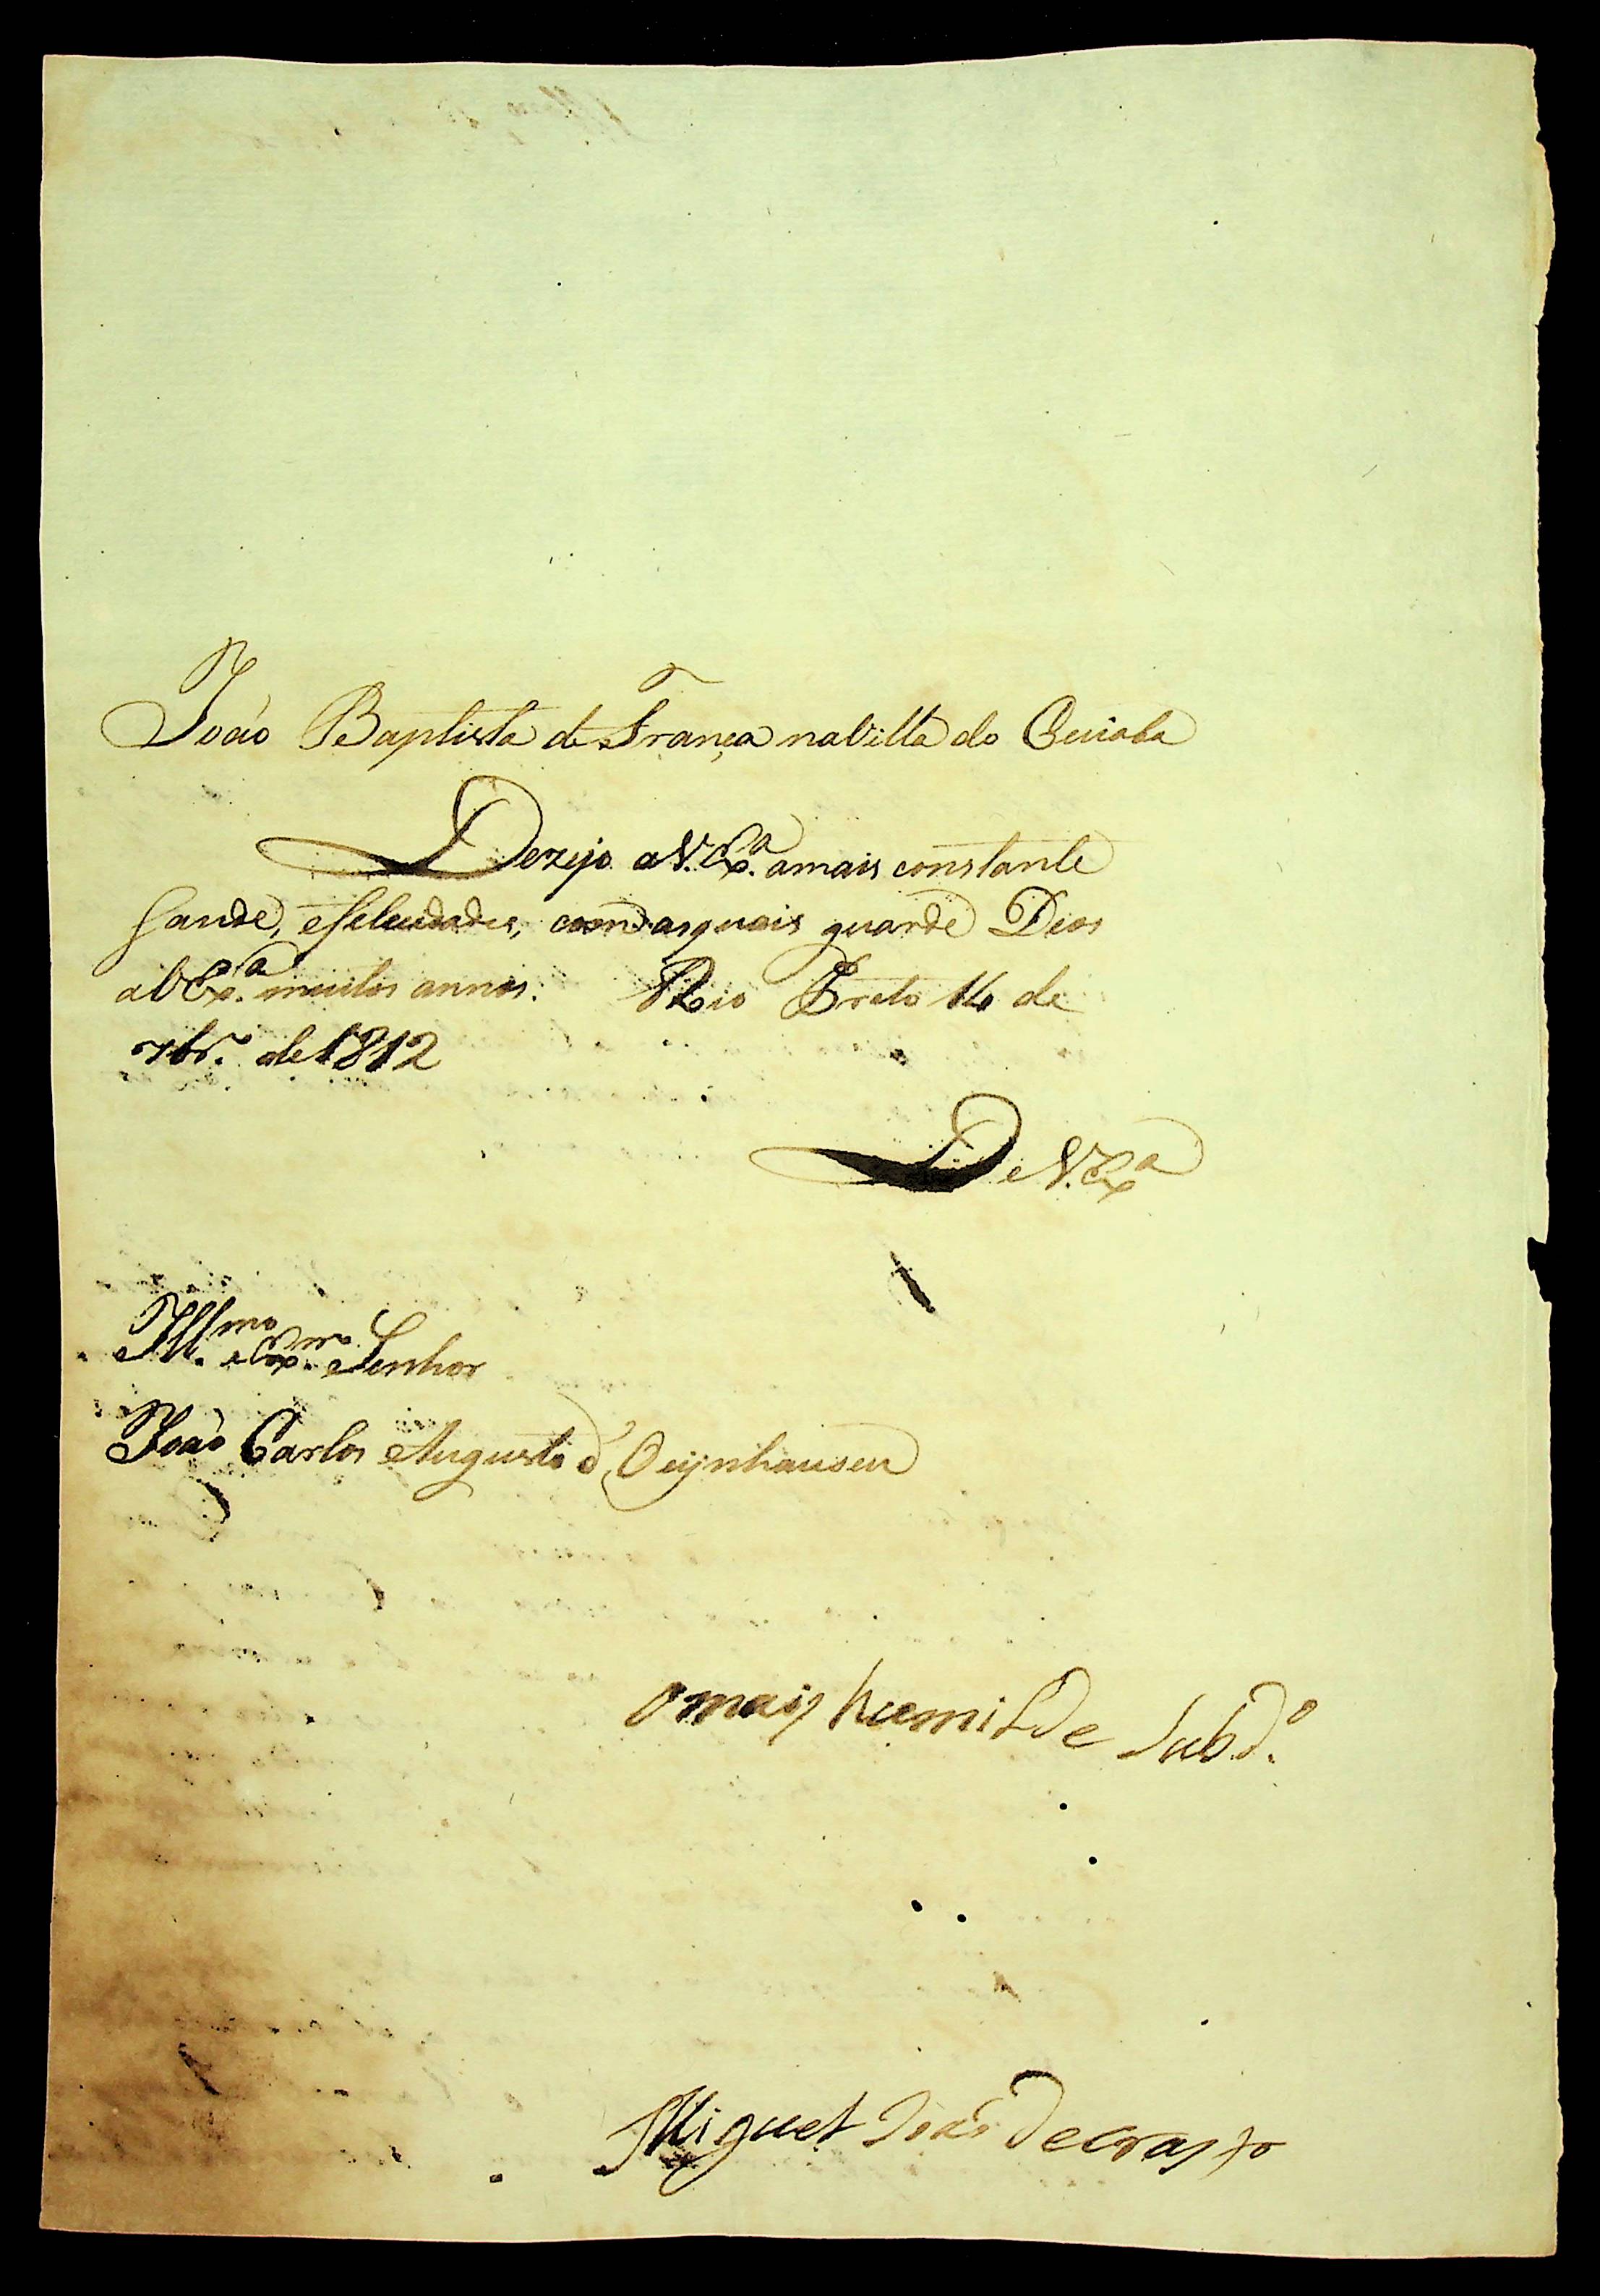 João Baptista de França na Villa do Cuiaba
Dezejo a V. Exª. a mais constante
saude, e felecidades, com as quais guarde Deos
a V Exª. muitos annos. Rio Preto 14 de
7br.º de 1812
De V. Exª
Illmo e Exmo. Senhor
João Carlos Augusto d'Oeynhausen
o mais humilde Subdº.
Miguel João de Crasto